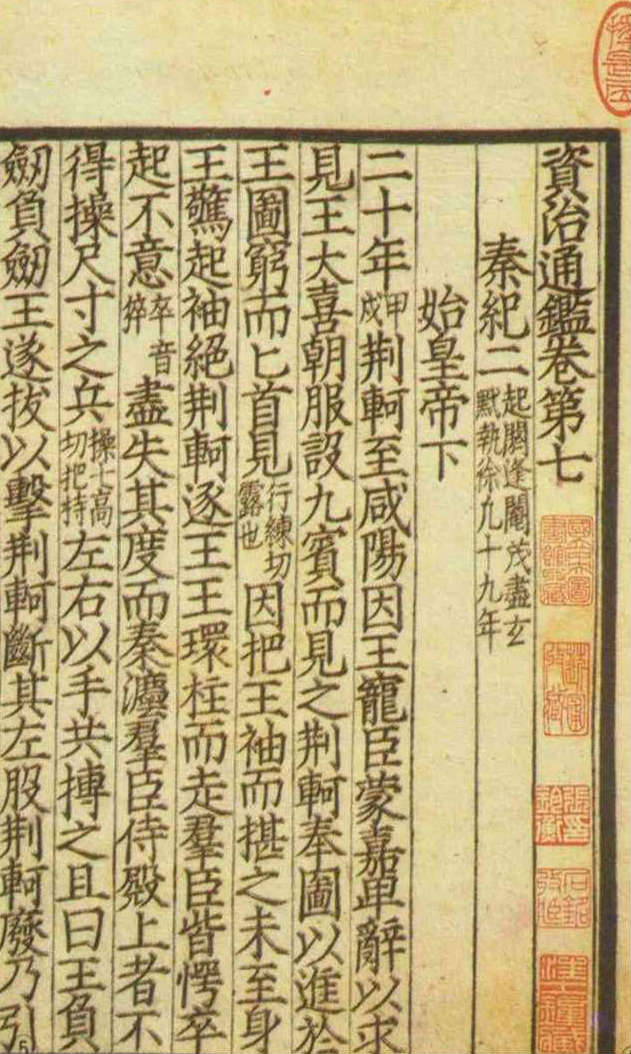 資治通鑑卷第七
秦紀二起閼逢閹茂盡玄黓執徐九十九年
始皇帝下
二十年甲戌荆軻至咸陽因王寵臣蒙嘉卑辭以求
見王大喜朝服設九賓而見之荆軻奉圖以進於
王圖窮而匕首見行練切露也因把王袖而揕之未至身
王驚起袖絕荆軻逐王王環柱而走羣臣皆愕卒
起不意卒音猝盡失其度而秦灋羣臣侍殿上者不
得操尺寸之兵操七高切把持左右以手共搏之且曰王負
劒負劒王遂拔以擊荆軻斷其左股荆軻廢乃引